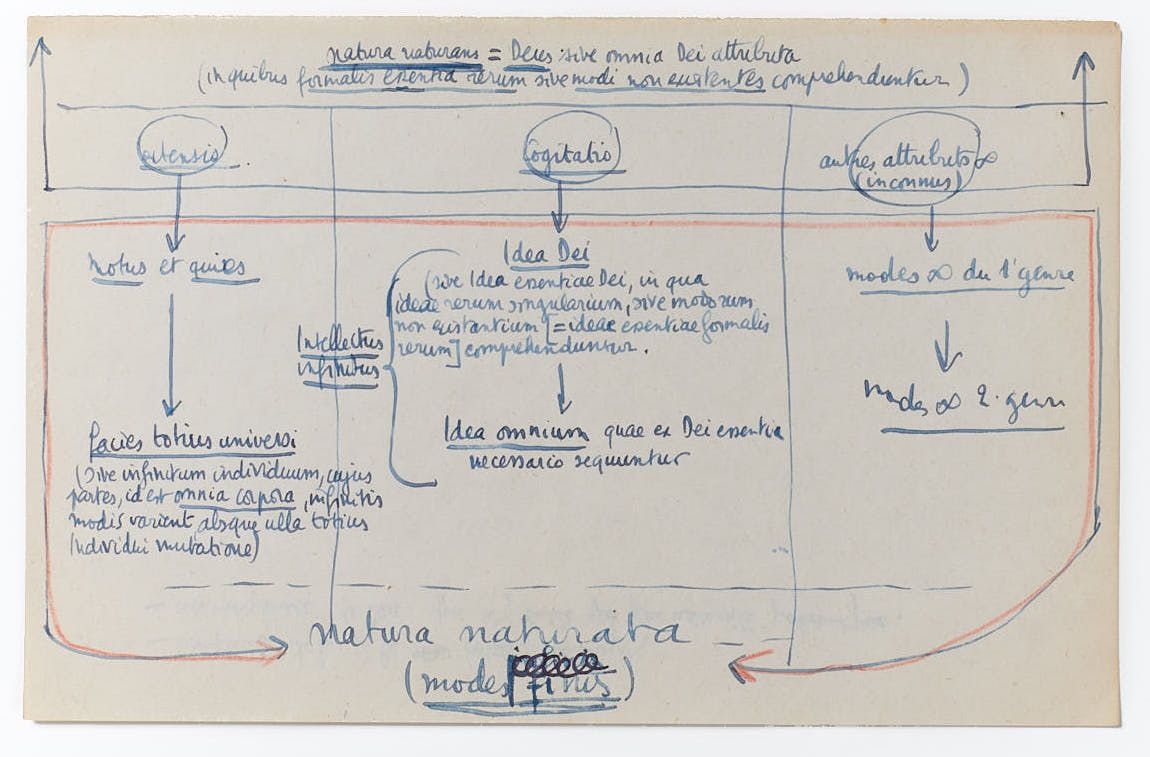 natura naturans = Deus sive omnia Dei attributa
(in quibus formalis essentia rerum sive modi non existentes comprehenduntur)
extensio
Cogitatio
autres attributs ∞
(inconnus)
Motus et quies
Idea Dei
(sive Idea essentiae Dei, in qua
ideae rerum singularium, sive modorum
non existantium [= ideae essentiae formalis
rerum] comprehenduntur.
modes ∞ du 1° genre
Intellectus
infinitus
modes ∞ 2. genre
Facies totius universi
(sive infinitum individuum, cujus
partes, id est omnia corpora, infinitis
modis varient absque ulla totius
Individui mutatione)
Idea omnium quae ex Dei essentia
necessario sequuntur
natura naturata
(modes finis)